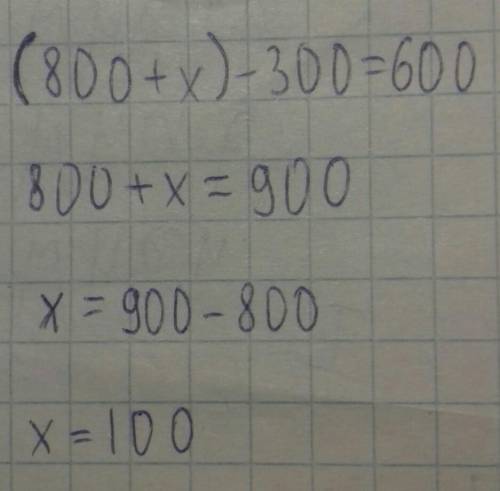 (800+x)-300=600
800+x=900
x=900-800
x=100